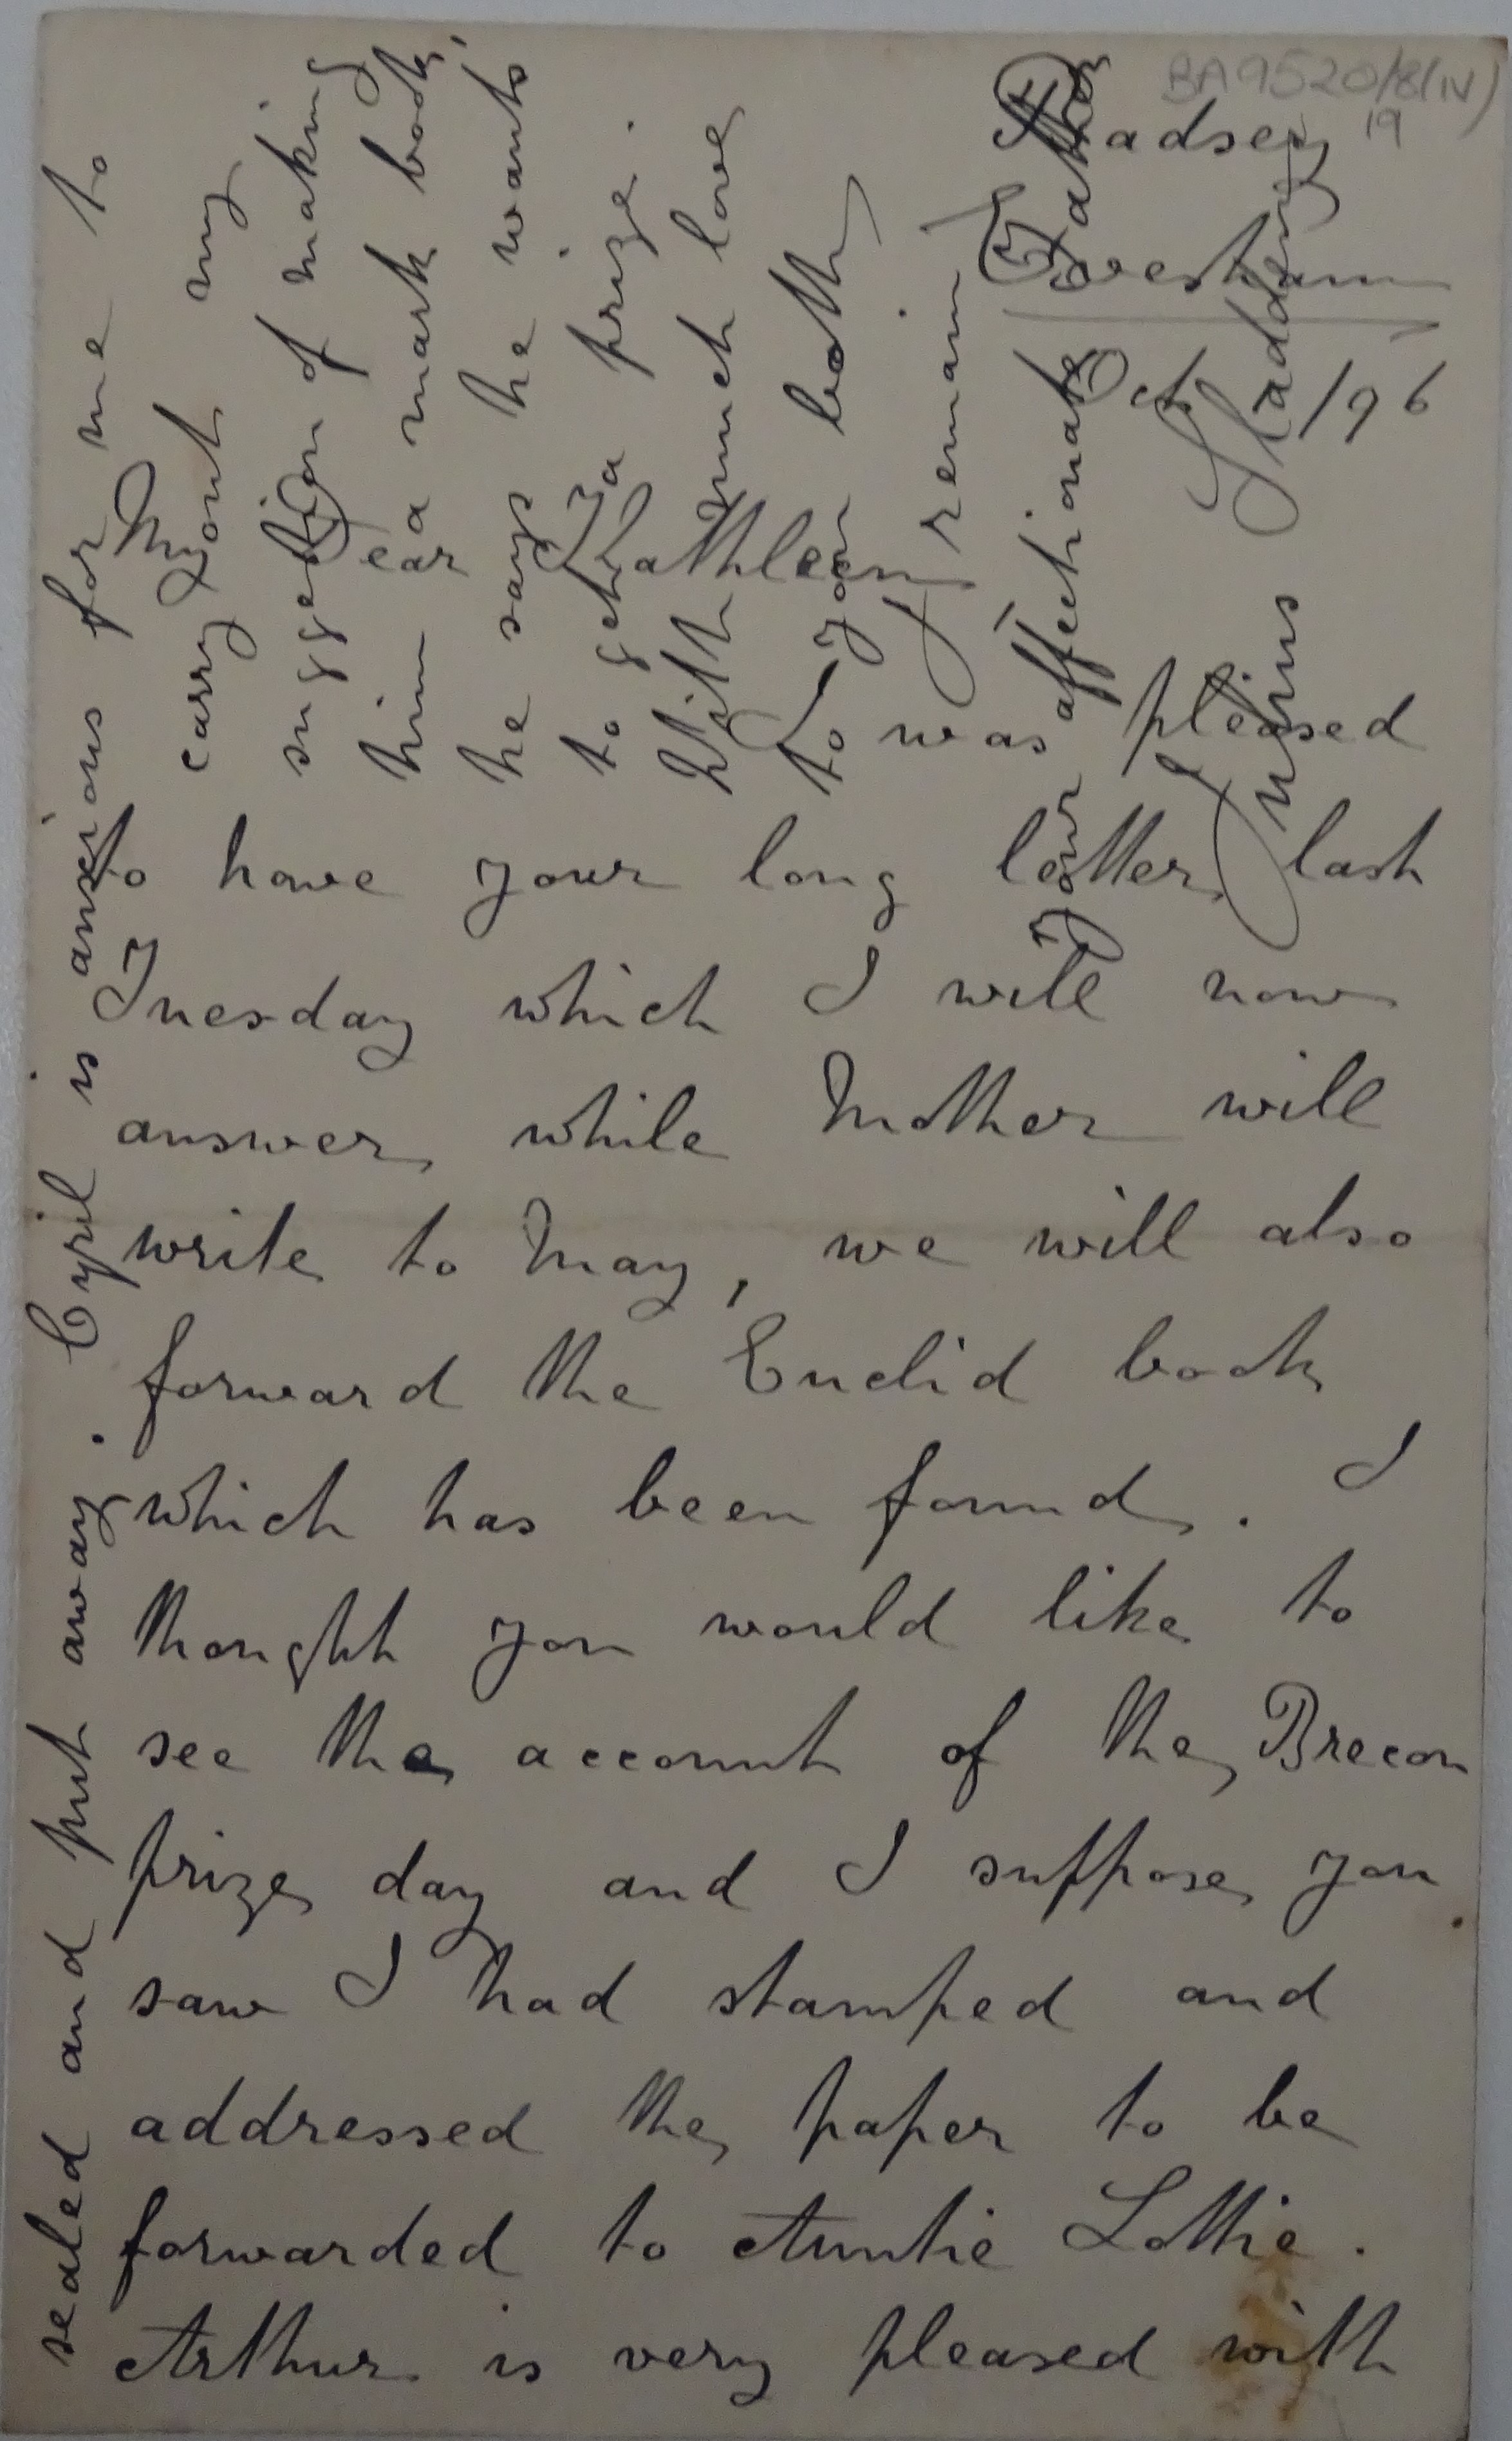 BA9520/8(IV)
19
Badsey
Evesham
Oct /96
My Dear Kathleen
I was pleased
to have your long letter last
Tuesday which I will now
answer while Mother will
write to May, we will also
forward the Euclid book
which has been found. I
thought you would like to
see the account of the Brecon
prize day and I suppose you
saw I had stamped and
addressed the paper to be
forwarded to Auntie Lottie.
Arthur is very pleased with
sealed and put away. Cyril is anxious for me to
carry out my
suggestion of making
him a mark book,
he says he wants
to get a prize.
With much love
to you both
I remain
Your affectionate Father
Julius Sladden